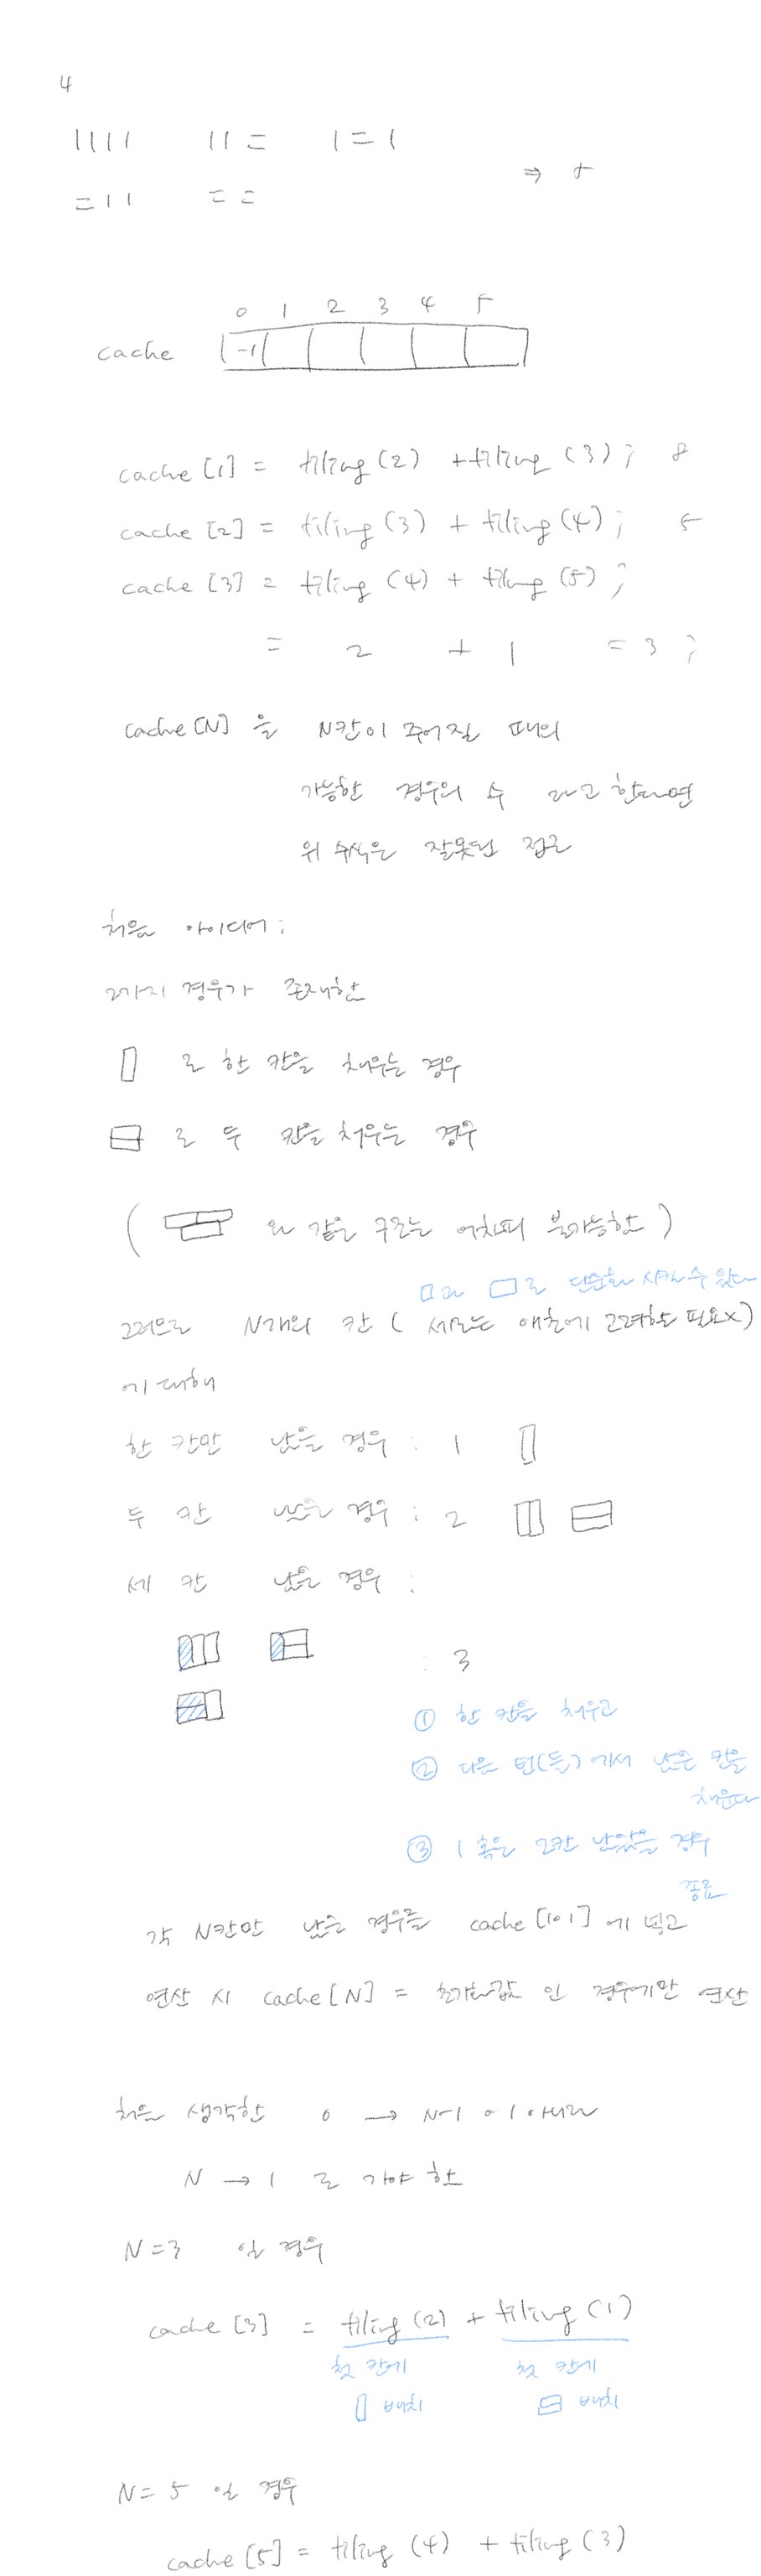 4
1111 11= 1=1
=11 == ⇒ 5
0 1 2 3 4 5
cache -1
cache [1] = tiling (2) + tiling (3) ; 8
cache [2] = tiling (3) + tiling (4) ; 5
cache [3] = tiling (4) + tiling (5) ;
= 2 + 1 = 3 ;
cache [N] 을 N칸이 주어질 때의
가능한 경우의 수 라고 한다면
위 수식은 잘못된 접근
처음 아이디어 :
2가지 경우가 존재함
로 한 칸을 채우는 경우
로 두 칸을 채우는 경우
( 와 같은 구조는 어차피 불가능함 )
과 로 단순화 시킬 수 있다
그러므로 N개의 칸 ( 세로는 애초에 고려할 필요x)
에 대해
한 칸만 남은 경우 : 1
두 칸 남은 경우 : 2
세 칸 남은 경우 :
: 3
① 한 칸을 채우고
② 다음 턴(들)에서 남은 칸을
채운다
③ 1 혹은 2칸 남았을 경우
종료
각 N칸만 남은 경우를 cache [101] 에 넣고
연산 시 cache [N] = 초기화값 인 경우만 연산
처음 생각한 0 → N-1 이 아니라
N → 1 로 가야 함
N=3 일 경우
cache [3] = tiling (2) + tiling (1)
첫 칸에 첫 칸에
배치 배치
N=5 일 경우
cache [5] = tiling (4) + tiling (3)